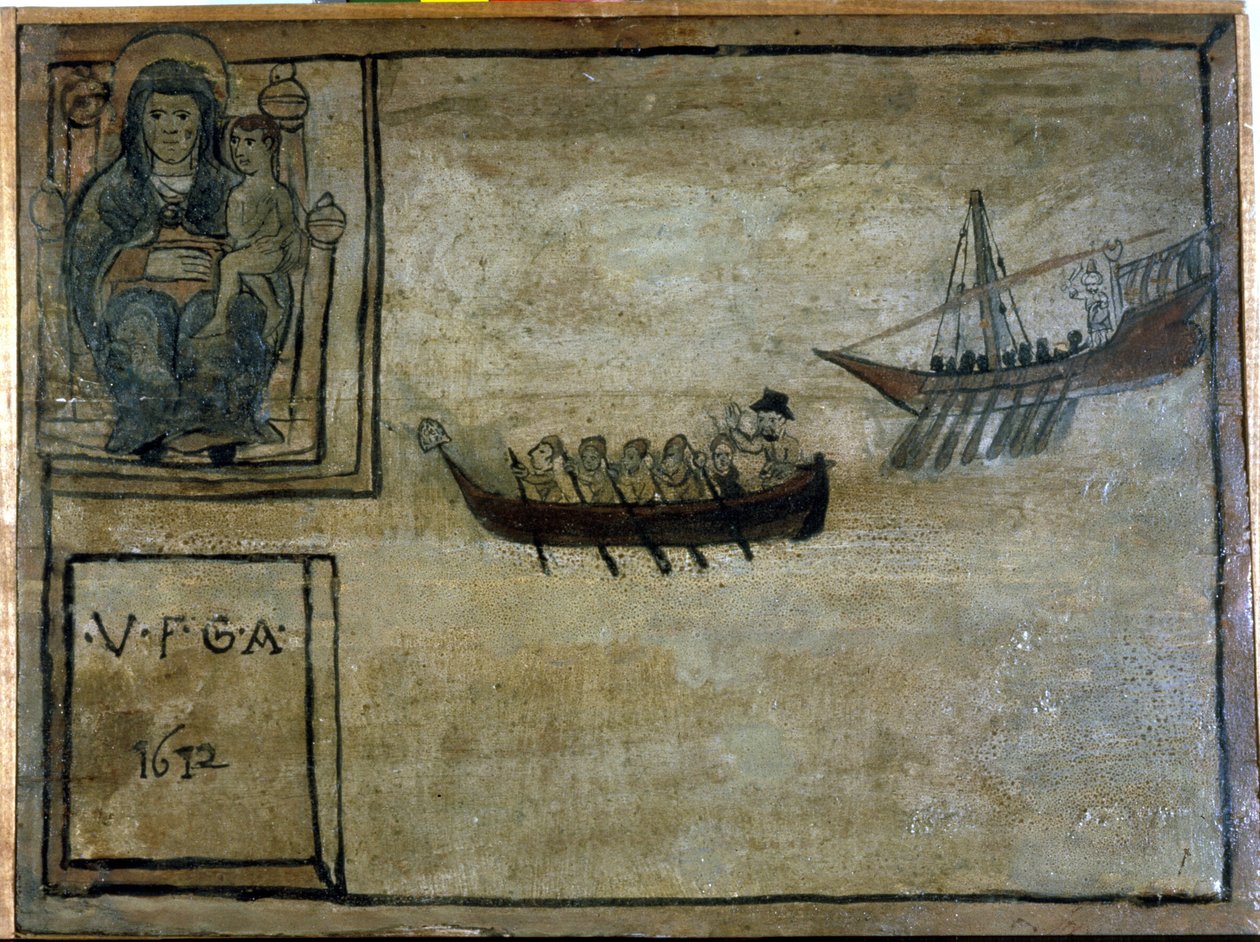 ·V·F·G·A·
1612